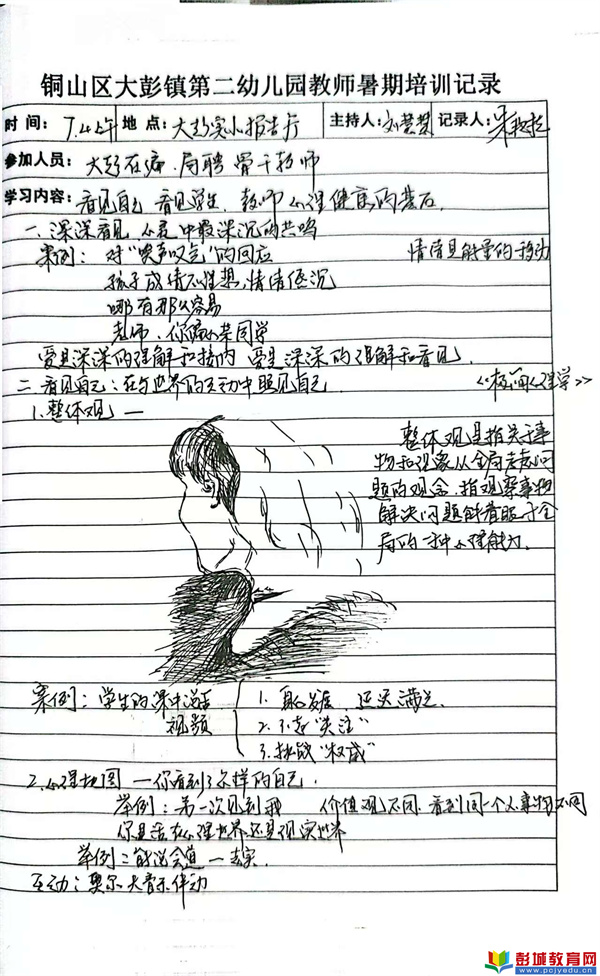 铜山区大彭镇第二幼儿园教师暑期培训记录
时间: 7.4上午 地点: 大彭实小报告厅 主持人: 记录人:
参加人员: 大彭在编、局聘 骨干教师
学习内容: 看见自己 看见学生 教师心理健康的基石
一.深深看见 心灵中最深沉的共鸣
案例: 对“唉声叹气”的回应 情绪是能量的移动
孩子成绩不理想,情绪低沉
哪有那么容易
老师,你偏心某同学
爱是深深的理解和接纳 爱是深深的理解和看见.
二.看见自己:在与世界的互动中照见自己. 心理学》
1.整体观 —
整体观是指关于事
物和现象从全局考虑问
题的观念.指观察事物
解决问题能着眼于全
局的一种心理能力.
案例: 学生的课中说话 1. 还是满足.
视频 2. 引起“关注”
3. 挑战“权威”
2.心理地图 — 你看到了怎样的自己.
举例: 第一次见到我 价值观不同.看到同一个人事物不同
你是活在心理世界还是现实世界
举例二 — 去实.
互动: 奥尔夫音乐律动
彭城教育网
www.pcjyedu.cn